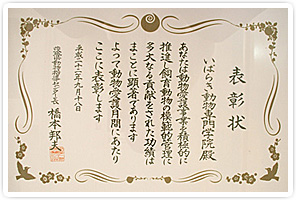 表彰状
いばらき動物専門学院殿
あなたは動物愛護事業を積極的に
推進し飼育動物の模範的管理に
多大なる貢献をされた功績は
まことに顕著であります
よって動物愛護月間にあたり
ここに表彰します
平成二十二年九月十八日
橋本邦夫